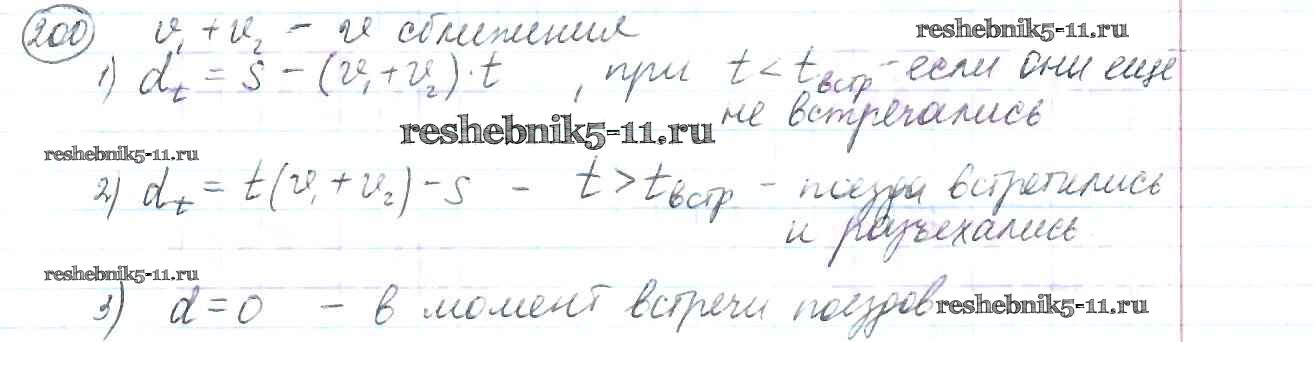 200 v₁ + v₂ - v сближения reshebnik5-11.ru
1) dt = S - (v₁ + v₂) · t , при t < tвстр - если они ещё
не встречались
reshebnik5-11.ru
reshebnik5-11.ru
2) dt = t(v₁ + v₂) - S - t > tвстр - поезда встретились
и разъехались
reshebnik5-11.ru
3) d = 0 - в момент встречи поездов reshebnik5-11.ru